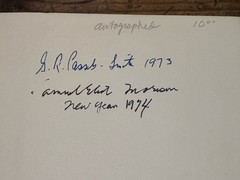 autographed 10⁰⁰
G. R. 1973
Samuel Eliot Morison
New Year 1974